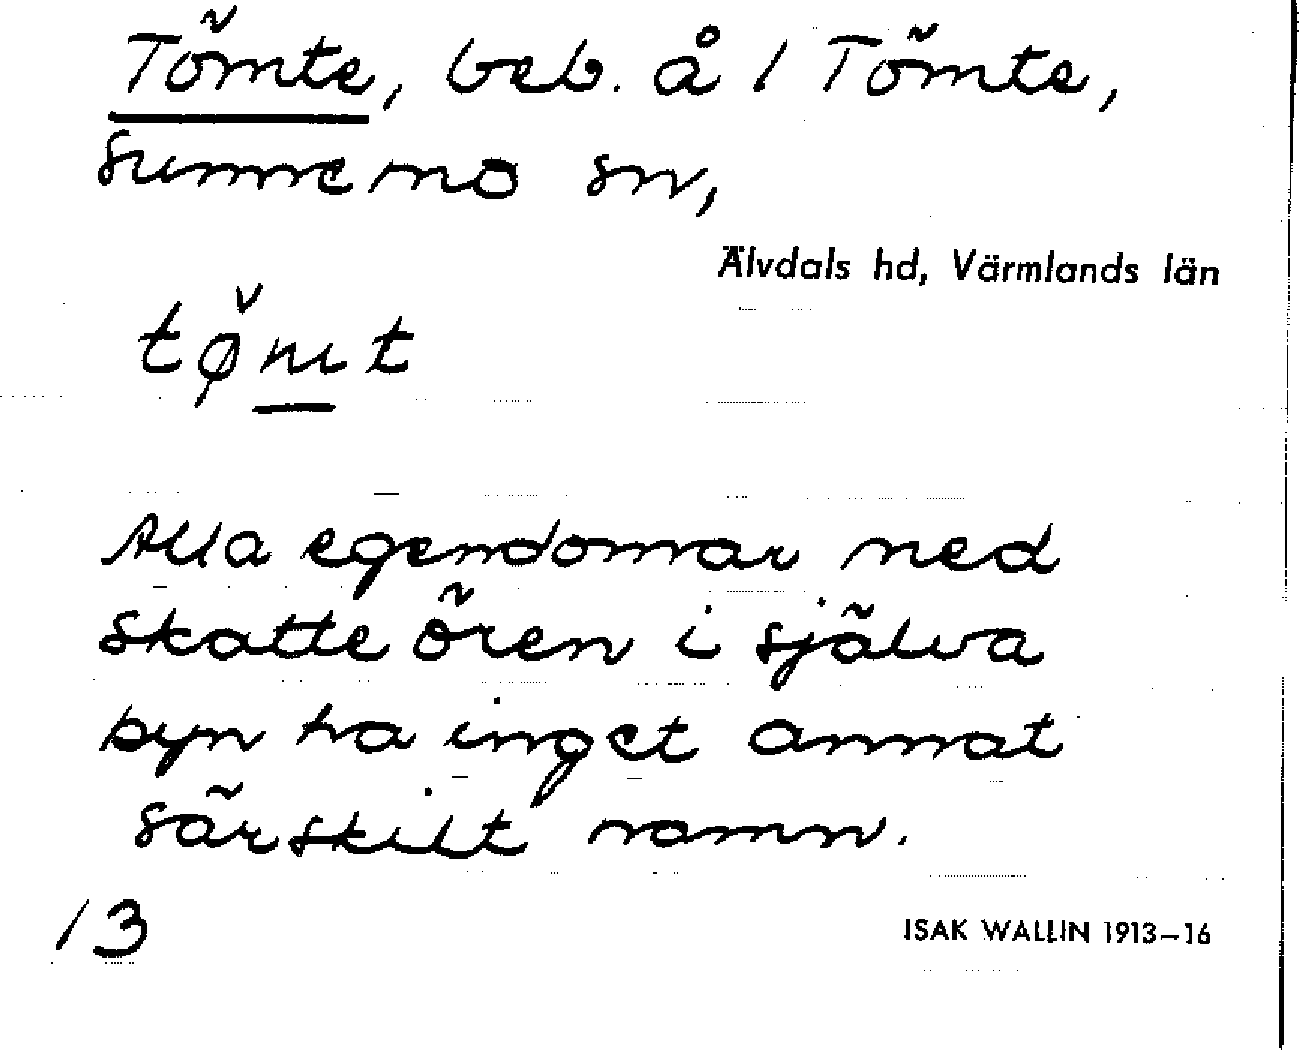 Tömte, beb. å 1 Tömte,
Sunnemo sn,
Älvdals hd, Värmlands län
tø̌mt
Alla egendomar med
skatte ören i själva
byn ha inget annat
särskilt namn.
13
ISAK WALLIN 1913–16